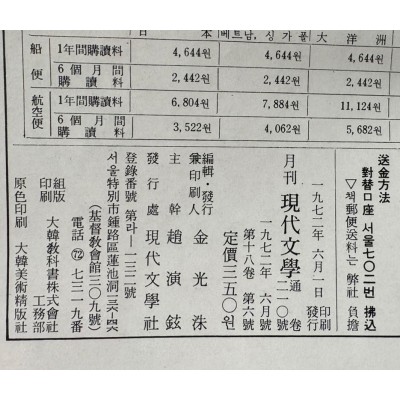 日 本 베트남, 싱가폴 大 洋 洲
船便 1年間購讀料 4,644원 4,644원 4,644원
6個月間購讀料 2,442원 2,442원 2,442원
航空便 1年間購讀料 6.804원 7,884원 11,124원
6個月間購讀料 3,522원 4,062원 5,682원
送金方法
對替口座 서울七〇二번 拂込
▽책郵便送料는 弊社 負擔
一九七二年 六月 一日 印刷 發行
月刊 現代文學 通卷 二一〇號
一九七二年 六月號
第十八卷 第六號
定價三五〇원
編輯・發行 兼印刷人 金光洙
主幹 趙演鉉
發行處 現代文學社
登錄番號 第라一一三二一號
서울特別市鍾路區蓮池洞一三六一四六
(基督敎會館三〇九號)
電話 72 七三一九番
組版 印刷 大韓敎科書株式會社 工務部
原色印刷 大韓美術精版社